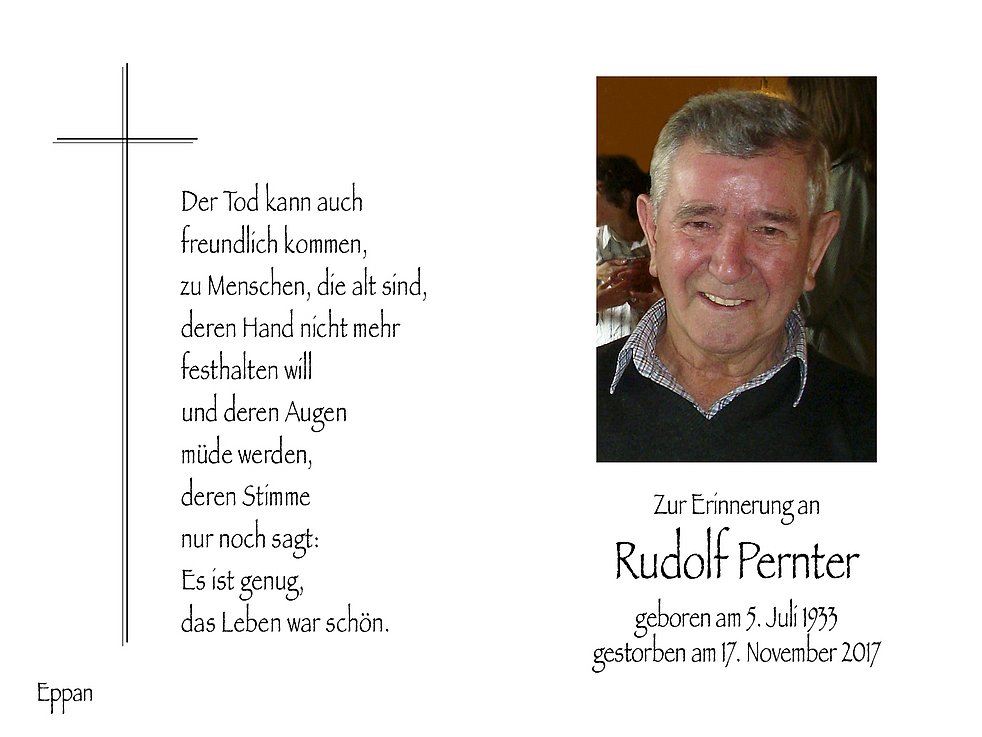 Der Tod kann auch
freundlich kommen,
zu Menschen, die alt sind,
deren Hand nicht mehr
festhalten will
und deren Augen
müde werden,
deren Stimme
nur noch sagt:
Es ist genug,
das Leben war schön.
Eppan
Zur Erinnerung an
Rudolf Pernter
geboren am 5. Juli 1933
gestorben am 17. November 2017